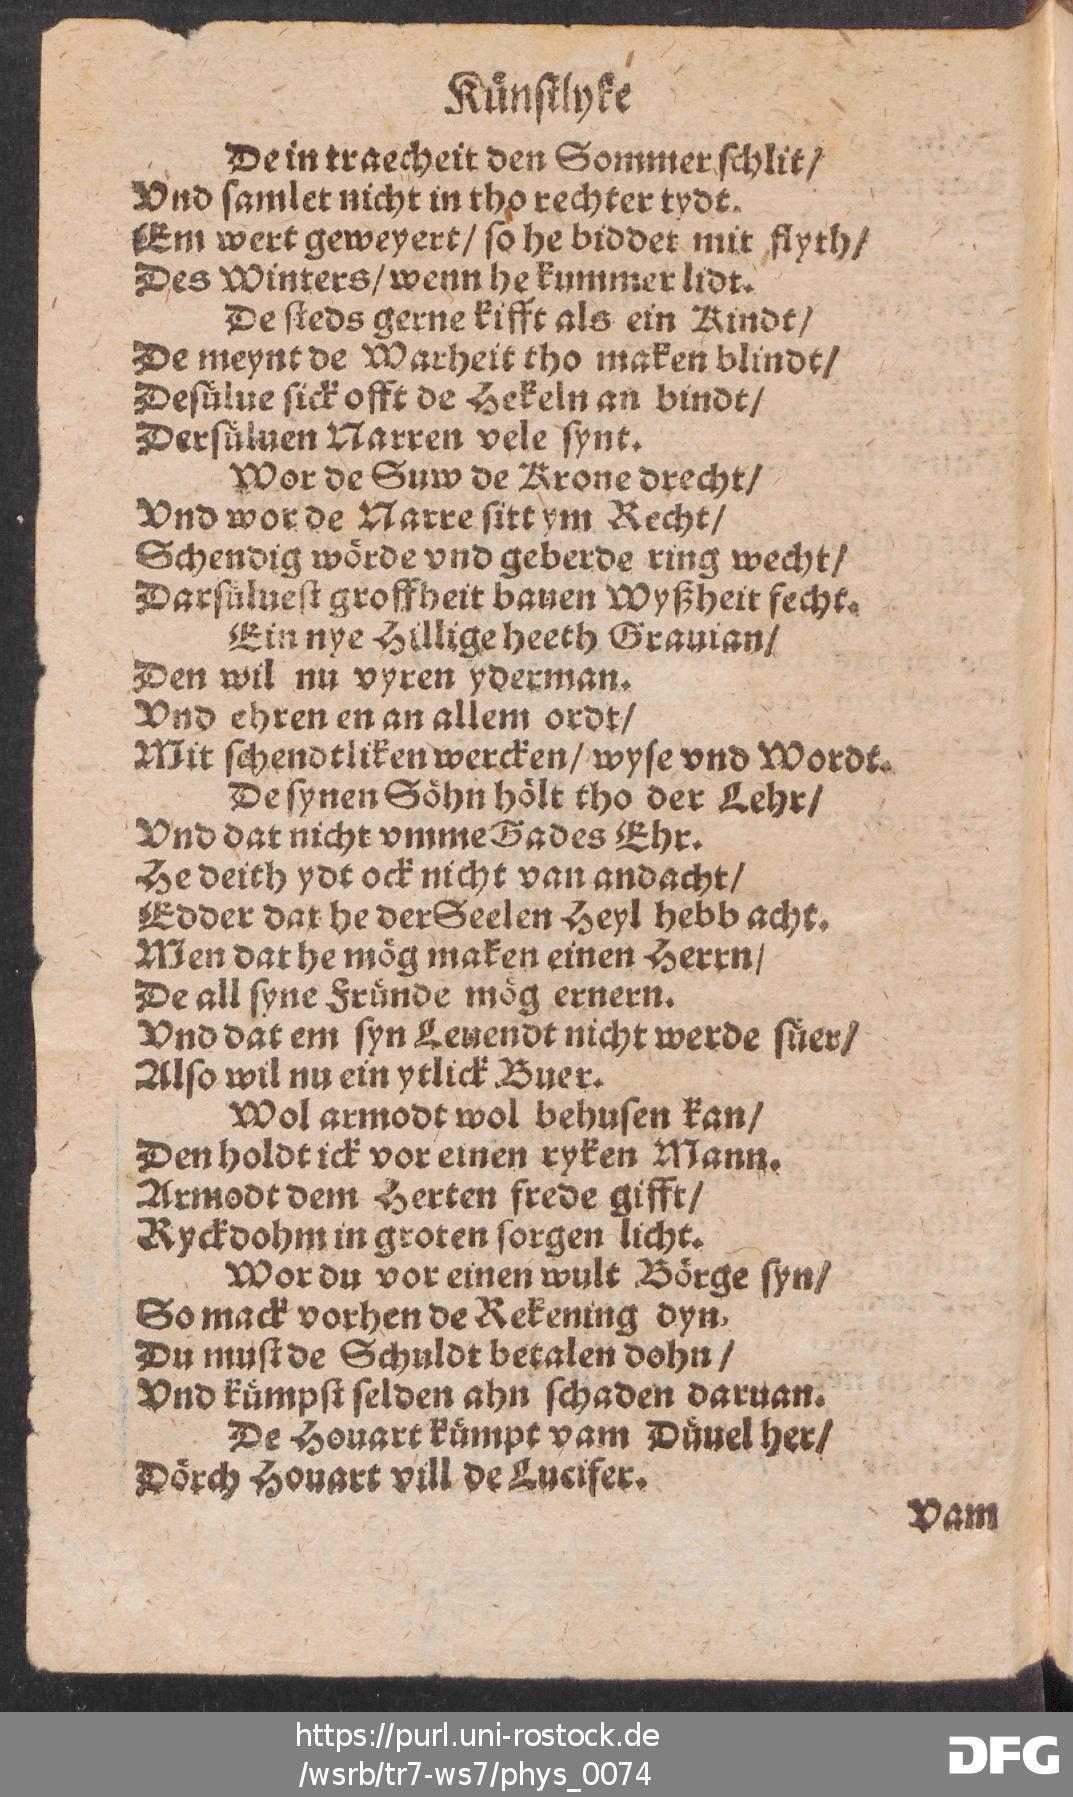 Kuͤnstlyke
De in traecheit den Sommer schlit/
Vnd samlet nicht in tho rechter tydt.
Em wert geweyert/ so he biddet mit flyth/
Des Winters/ wenn he kummer lidt.
De steds gerne kifft als ein Kindt/
De meynt de Warheit tho maken blindt/
Desuͤlue sick offt de Hekeln an bindt/
Dersuͤluen Narren vele synt.
Wor de Suw de Krone drecht/
Vnd wor de Narre sitt ym Recht/
Schendig woͤrde vnd geberde ring wecht/
Darsuͤluest groffheit bauen Wyßheit fecht.
Ein nye Hillige heeth Grauian/
Den wil nu vyren yderman.
Vnd ehren en an allem ordt/
Mit schendtliken wercken/ wyse vnd Wordt.
De synen Soͤhn hoͤlt tho der Lehr/
Vnd dat nicht vmme Gades Ehr.
He deith ydt ock nicht van andacht/
Edder dat he der Seelen Heyl hebb acht.
Men dat he moͤg maken einen Herrn/
De all syne Fruͤnde moͤg ernern.
Vnd dat em syn Leuendt nicht werde suͤer/
Also wil nu ein ytlick Buer.
Wol armodt wol behusen kan/
Den holdt ick vor einen ryken Mann.
Armodt dem Herten frede gifft/
Ryckdohm in groten sorgen licht.
Wor du vor einen wult Boͤrge syn/
So mack vorhen de Rekening dyn.
Du must de Schuldt betalen dohn/
Vnd kuͤmpst selden ahn schaden daruan.
De Houart kuͤmpt vam Duͤuel her/
Doͤrch Houart vill de Lucifer.
Vam
https://purl.uni-rostock.de
/wsrb/tr7-ws7/phys_0074
DFG